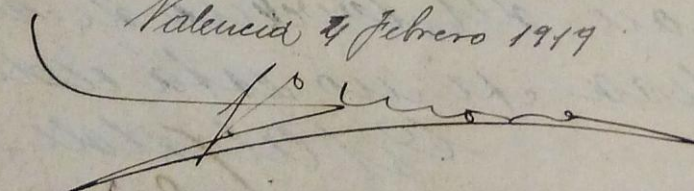 Valencia 4 Febrero 1919